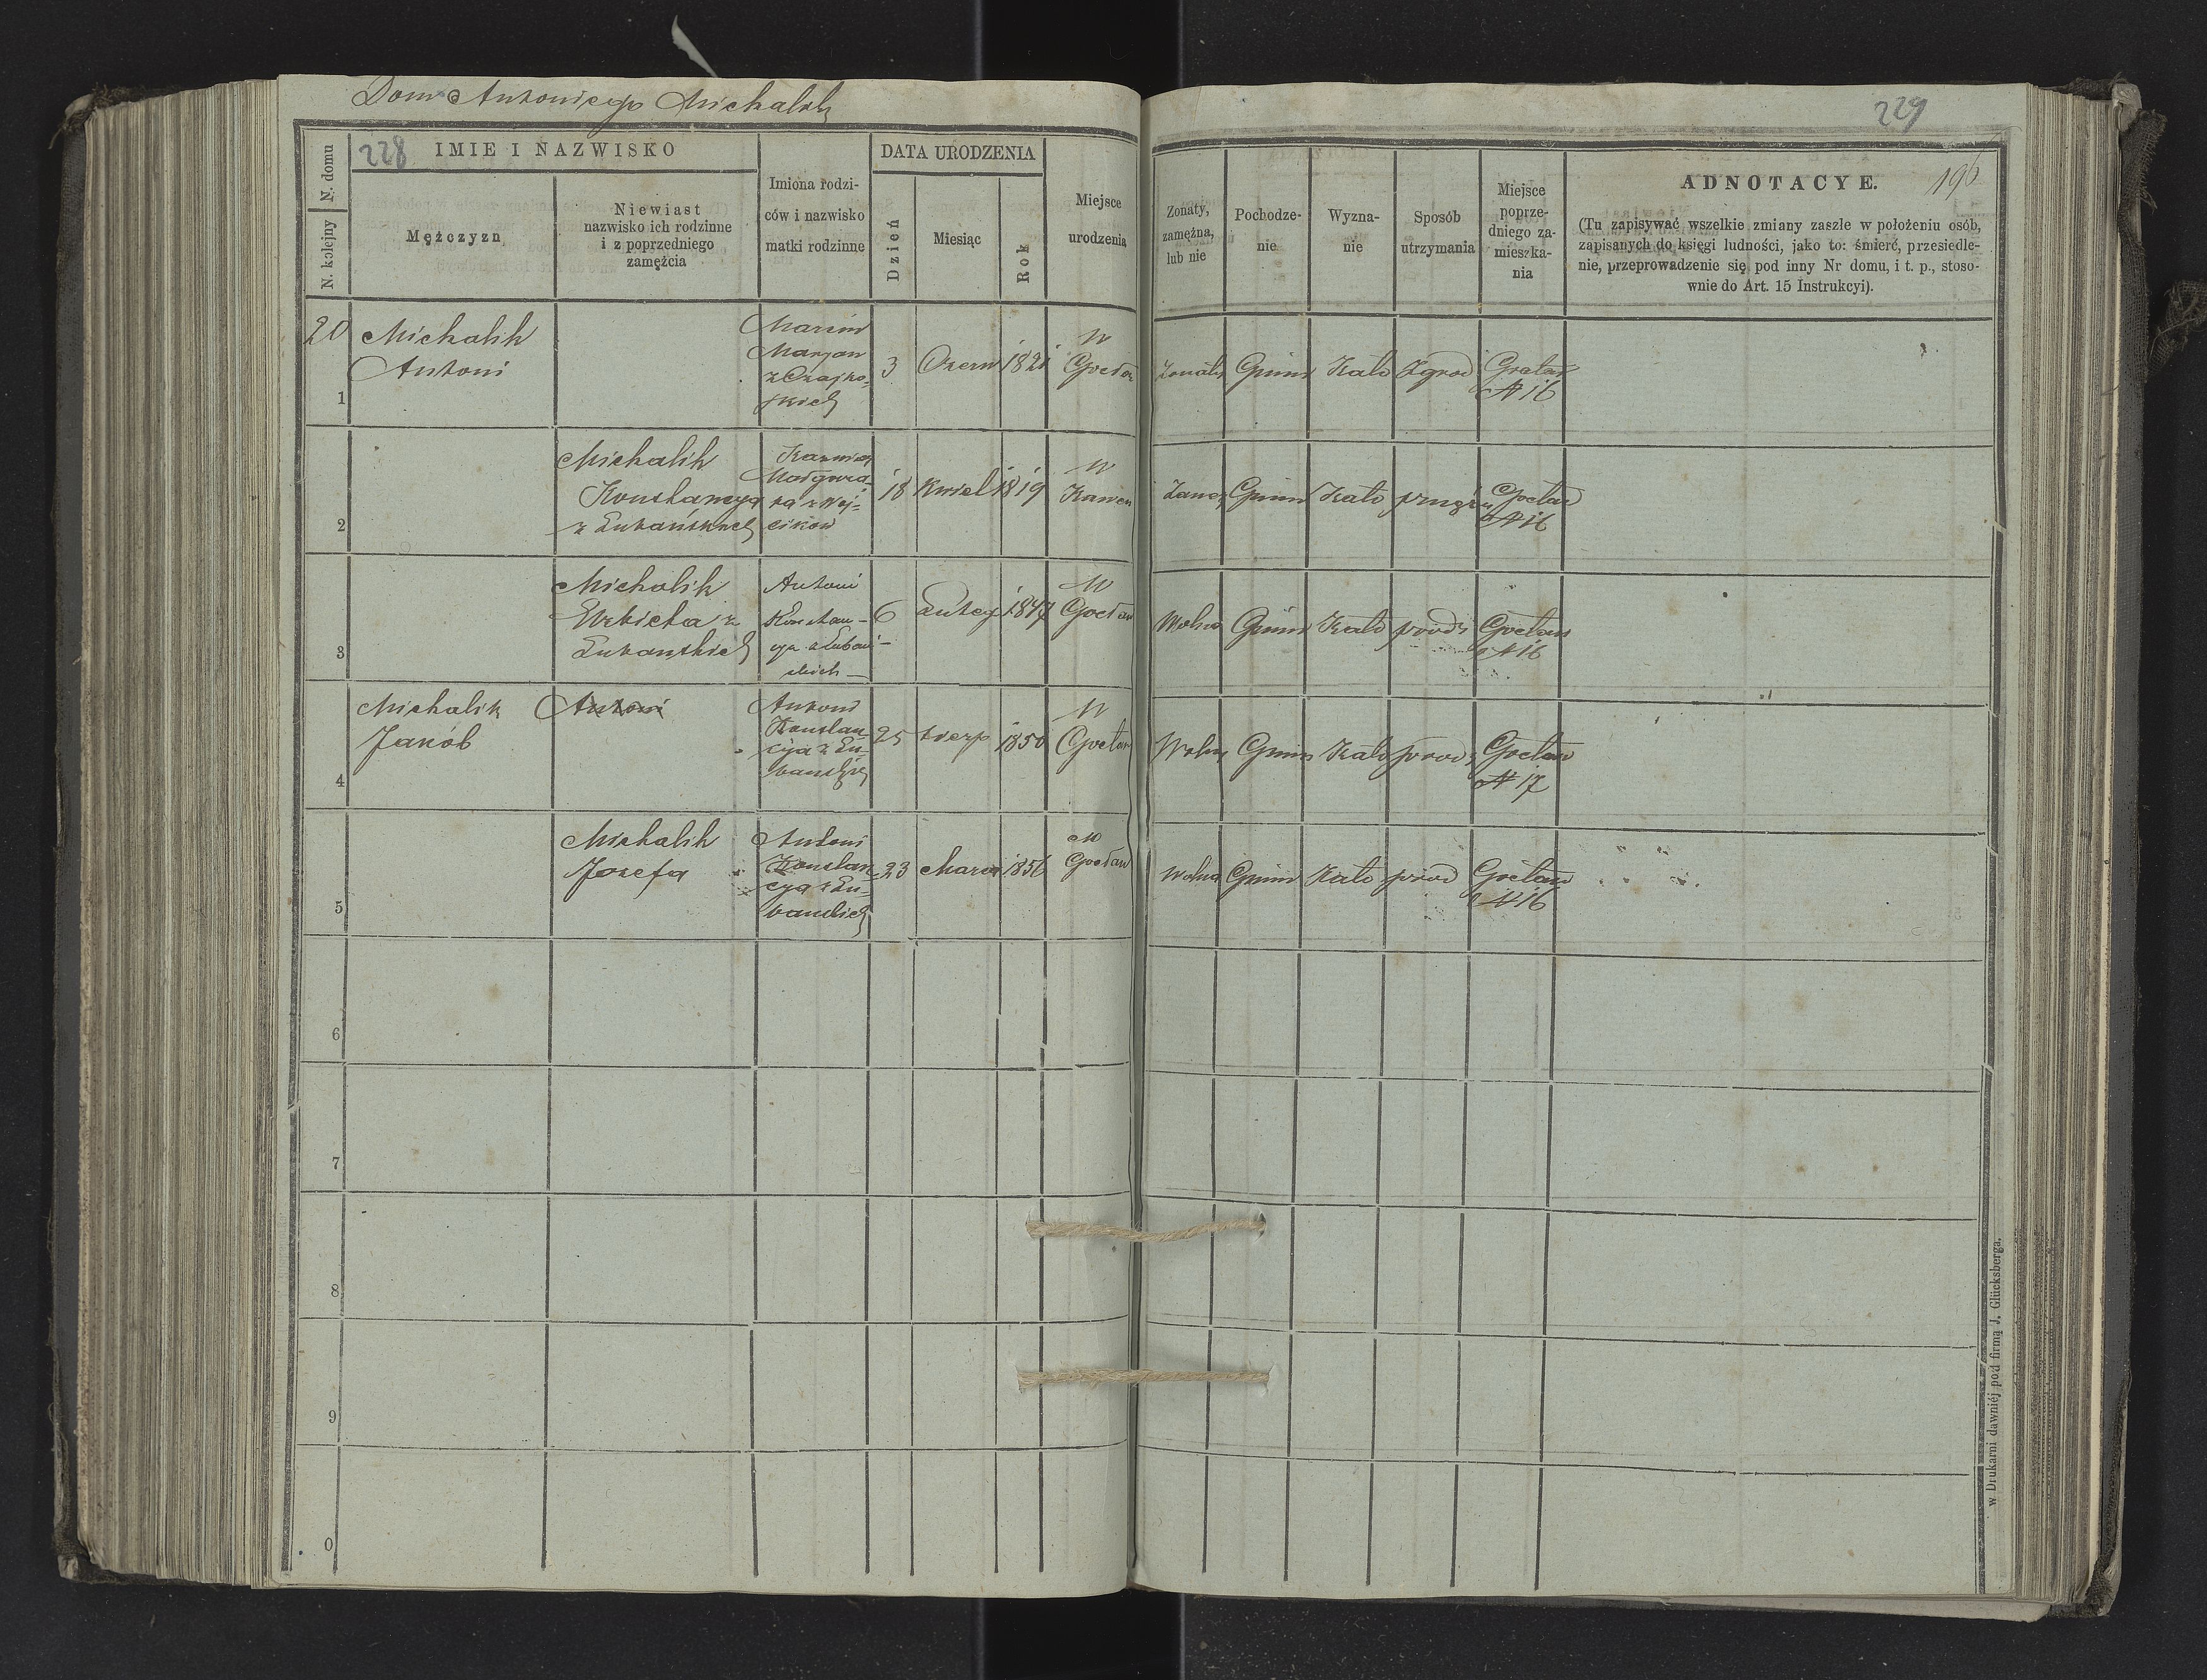 Dom Antoniego Michalik
228
N. domu
N. kolejny
IMIE I NAZWISKO
Mężczyzn
Niewiast
nazwisko ich rodzinne
i z poprzedniego
zamęźcia
Imiona rodzi-
ców i nazwisko
matki rodzinne
DATA URODZENIA
Dzień
Miesiąc
Rok
Miejsce
urodzenia
20
1
Michalik
Antoni
Marcin
Maryan
z Czajko-
skich
3
Czerw
1821
W
Gocław
2
Michalik
Konstancya
Kazmierz
Małgorza-
ta z Wój-
cików
18
Kwiet
1819
W
Kawen
3
Michalik
Elzbieta z
Antoni
Konstan-
cya
6
Lutego
1847
W
Gocław
4
Michalik
Jakób
Antoni
Antoni
Konstan-
cija
25
sierp
1850
W
Gocław
5
Michalik
Jozefa
Antoni
Konstan-
cya
23
Marca
1856
W
Gocław
6
7
8
9
0
229
196
Zonaty,
zamężna,
lub nie
Pochodze-
nie
Wyzna-
nie
Sposób
utrzymania
Miejsce
poprze-
dniego za-
mieszka-
nia
ADNOTACYE.
(Tu zapisywać wszelkie zmiany zaszłe w położeniu osób,
zapisanych do księgi ludności, jako to: śmierć, przesiedle-
nie, przeprowadzenie się pod inny Nr domu, i t. p., stoso-
wnie do Art. 15 Instrukcyi).
Zonaty
Gmin
Kato
Zgrod
Gocław
N 16
Zamę
Gmin
Kato
przy
Gocław
N 16
Wolna
Gmin
Kato
Gocław
N 16
Wolny
Gmin
Kato
Gocław
N 17
Wolna
Gmin
Kato
Gocław
N 16
w Drukarni dawniéj pod firmą J. Glücksberga.